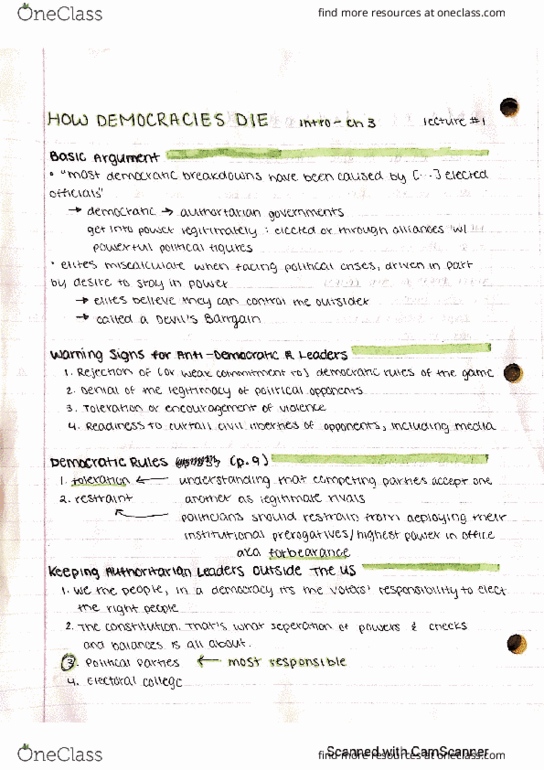 OneClass
find more resources at oneclass.com
HOW DEMOCRACIES DIE intro - ch 3 lecture #1
Basic Argument
• "most democratic breakdowns have been caused by [...] elected
officials"
→ democratic → authortarian governments
get into power legitimately : elected or through alliances w/
powerful political figures
• elites miscalculate when facing political crises, driven in part
by desire to stay in power
→ elites believe they can control the outsider
→ called a Devil's Bargain
Warning Signs for Anti-Democratic Leaders
1. Rejection of (or weak commitment to) democratic rules of the game
2. Denial of the legitimacy of political opponents
3. Toleration or encouragement of violence
4. Readiness to curtail civil liberties of opponents, including media
Democratic Rules (p.9)
1. toleration ← understanding that competing parties accept one
another as legitimate rivals
2. restraint ← politicians should restrain from deploying their
institutional prerogatives/highest power in office
aka forbearance
Keeping Authoritarian Leaders Outside the US
1. We the people, in a democracy its the voters' responsibility to elect
the right people
2. The constitution. That's what seperation of powers & checks
and balances is all about.
3. Political Parties ← most responsible
4. Electoral college
OneClass
Scanned with CamScanner
find more resources at oneclass.com